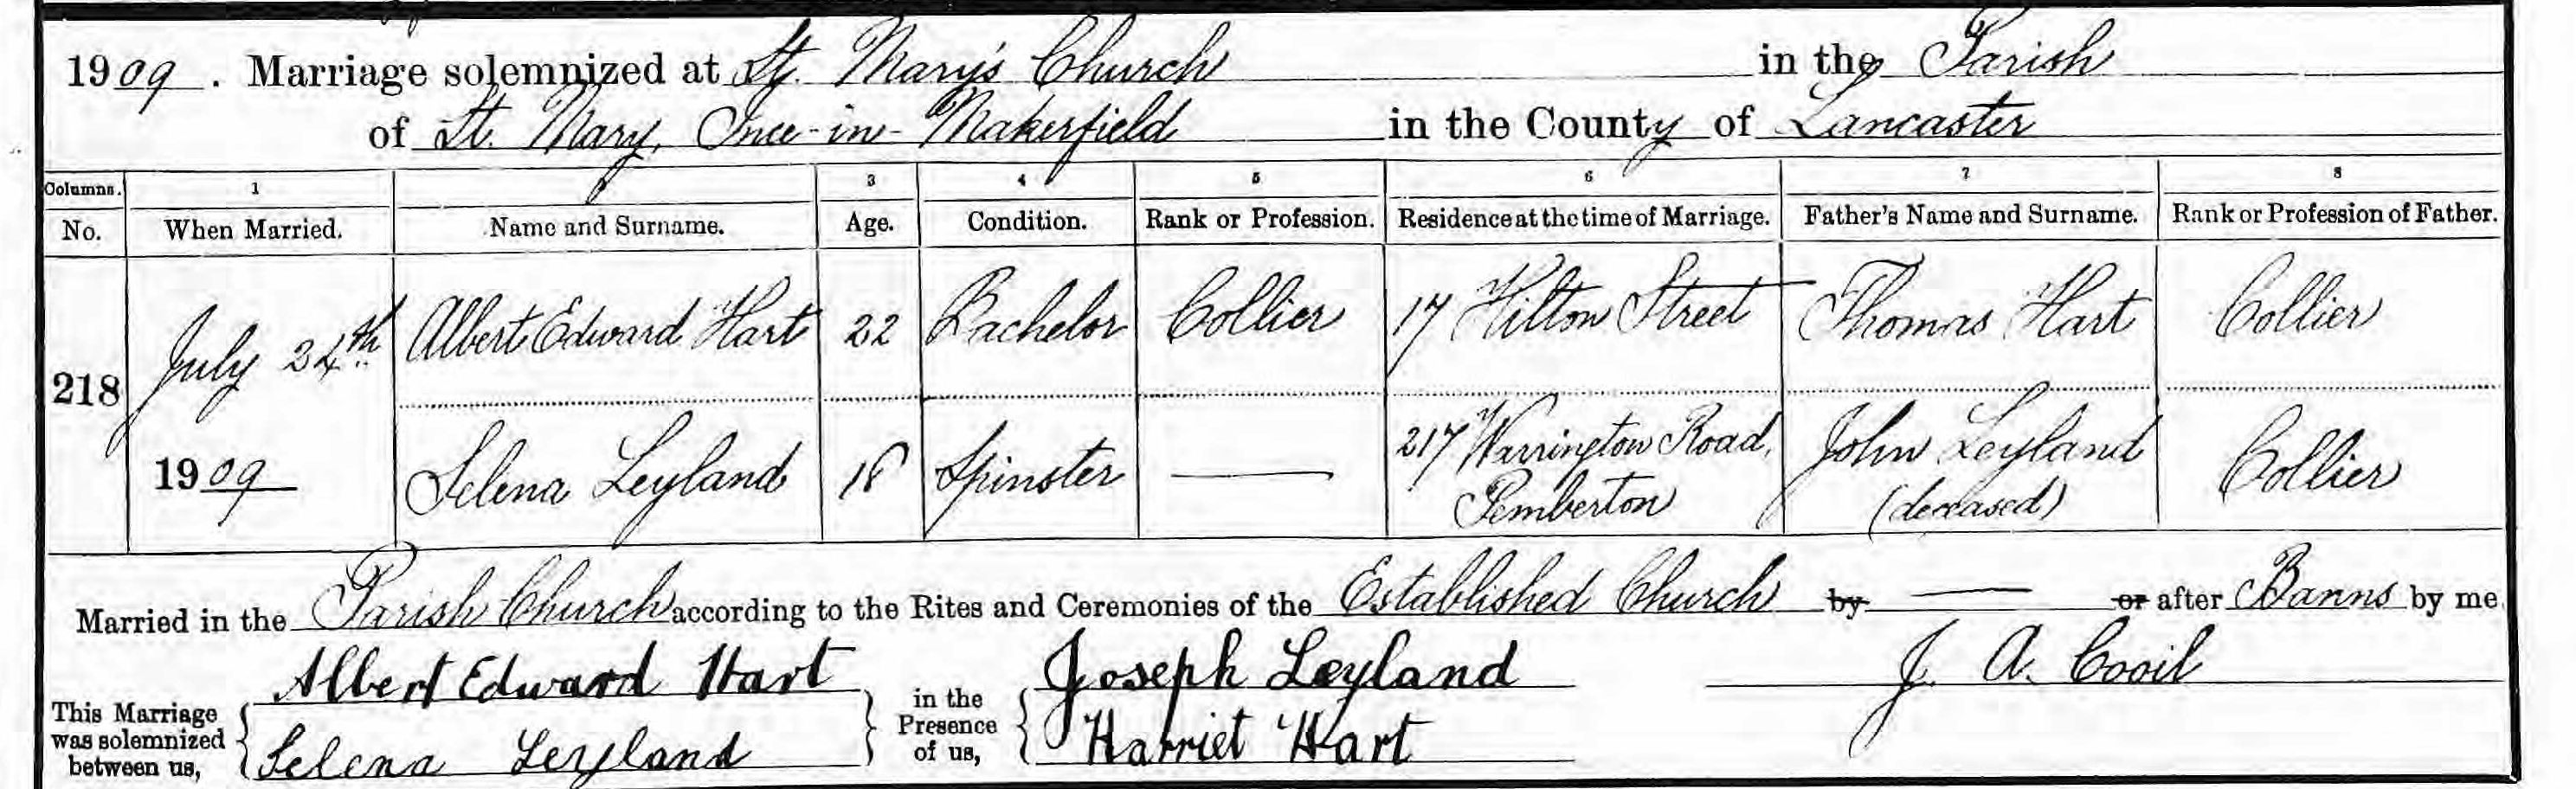 1909. Marriage solemnized at St. Mary's Church in the Parish
of St. Mary, Ince-in-Makerfield in the County of Lancaster
Columns. 1 3 4 5 6 7 8
No. When Married. Name and Surname. Age. Condition. Rank or Profession. Residence at the time of Marriage. Father's Name and Surname. Rank or Profession of Father.
218 July 24th 1909
Albert Edward Hart 22 Bachelor Collier 17 Hilton Street Thomas Hart Collier
Selena Leyland 18 Spinster — 217 Warrington Road, Pemberton John Leyland (deceased) Collier
Married in the Parish Church according to the Rites and Ceremonies of the Established Church by — or after Banns by me
This Marriage was solemnized between us,
Albert Edward Hart
Selena Leyland
in the Presence of us,
Joseph Leyland
Harriet Hart
J. A. Cooil